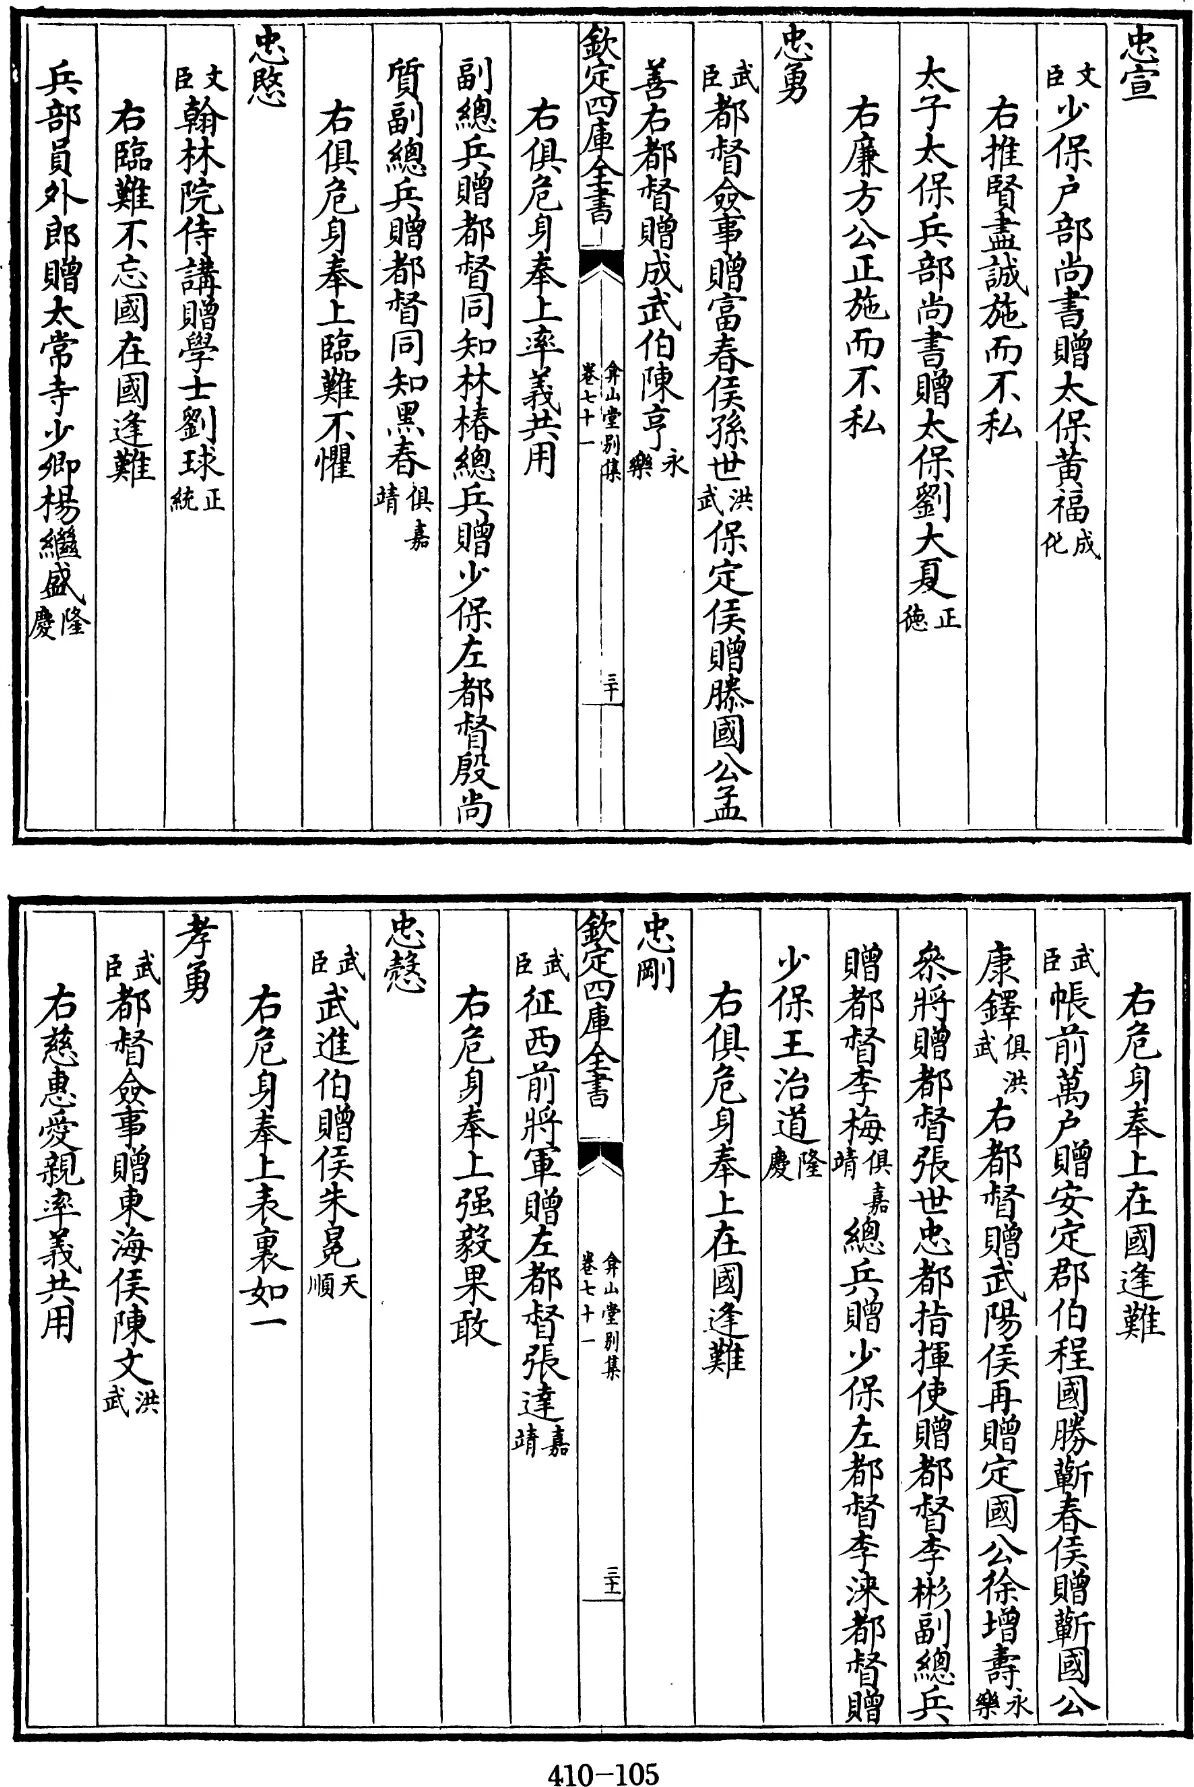 忠宣
文臣少保户部尚書贈太保黄福成化
右推賢盡誠施而不私
太子太保兵部尚書贈太保劉大夏正德
右廉方公正施而不私
忠勇
武臣都督僉事贈富春侯孫世洪武保定侯贈滕國公孟
善右都督贈成武伯陳亨永樂
欽定四庫全書 弇山堂别集 卷七十一 三十
右俱危身奉上率義共用
副總兵贈都督同知林椿總兵贈少保左都督殷尚
質副總兵贈都督同知黑春俱嘉靖
右俱危身奉上臨難不懼
忠愍
文臣翰林院侍講贈學士劉球正統
右臨難不忘國在國逢難
兵部員外郎贈太常寺少卿楊繼盛隆慶
右危身奉上在國逢難
武臣帳前萬户贈安定郡伯程國勝蘄春侯贈蘄國公
康鐸俱洪武右都督贈武陽侯再贈定國公徐增壽永樂
叅將贈都督張世忠都指揮使贈都督李彬副總兵
贈都督李梅俱嘉靖總兵贈少保左都督李淶都督贈
少保王治道隆慶
右俱危身奉上在國逢難
忠剛
欽定四庫全書 弇山堂别集 卷七十一 三十一
武臣征西前將軍贈左都督張達嘉靖
右危身奉上强毅果敢
忠慤
武臣武進伯贈侯朱冕天順
右危身奉上表裏如一
孝勇
武臣都督僉事贈東海侯陳文洪武
右慈惠愛親率義共用
410-105